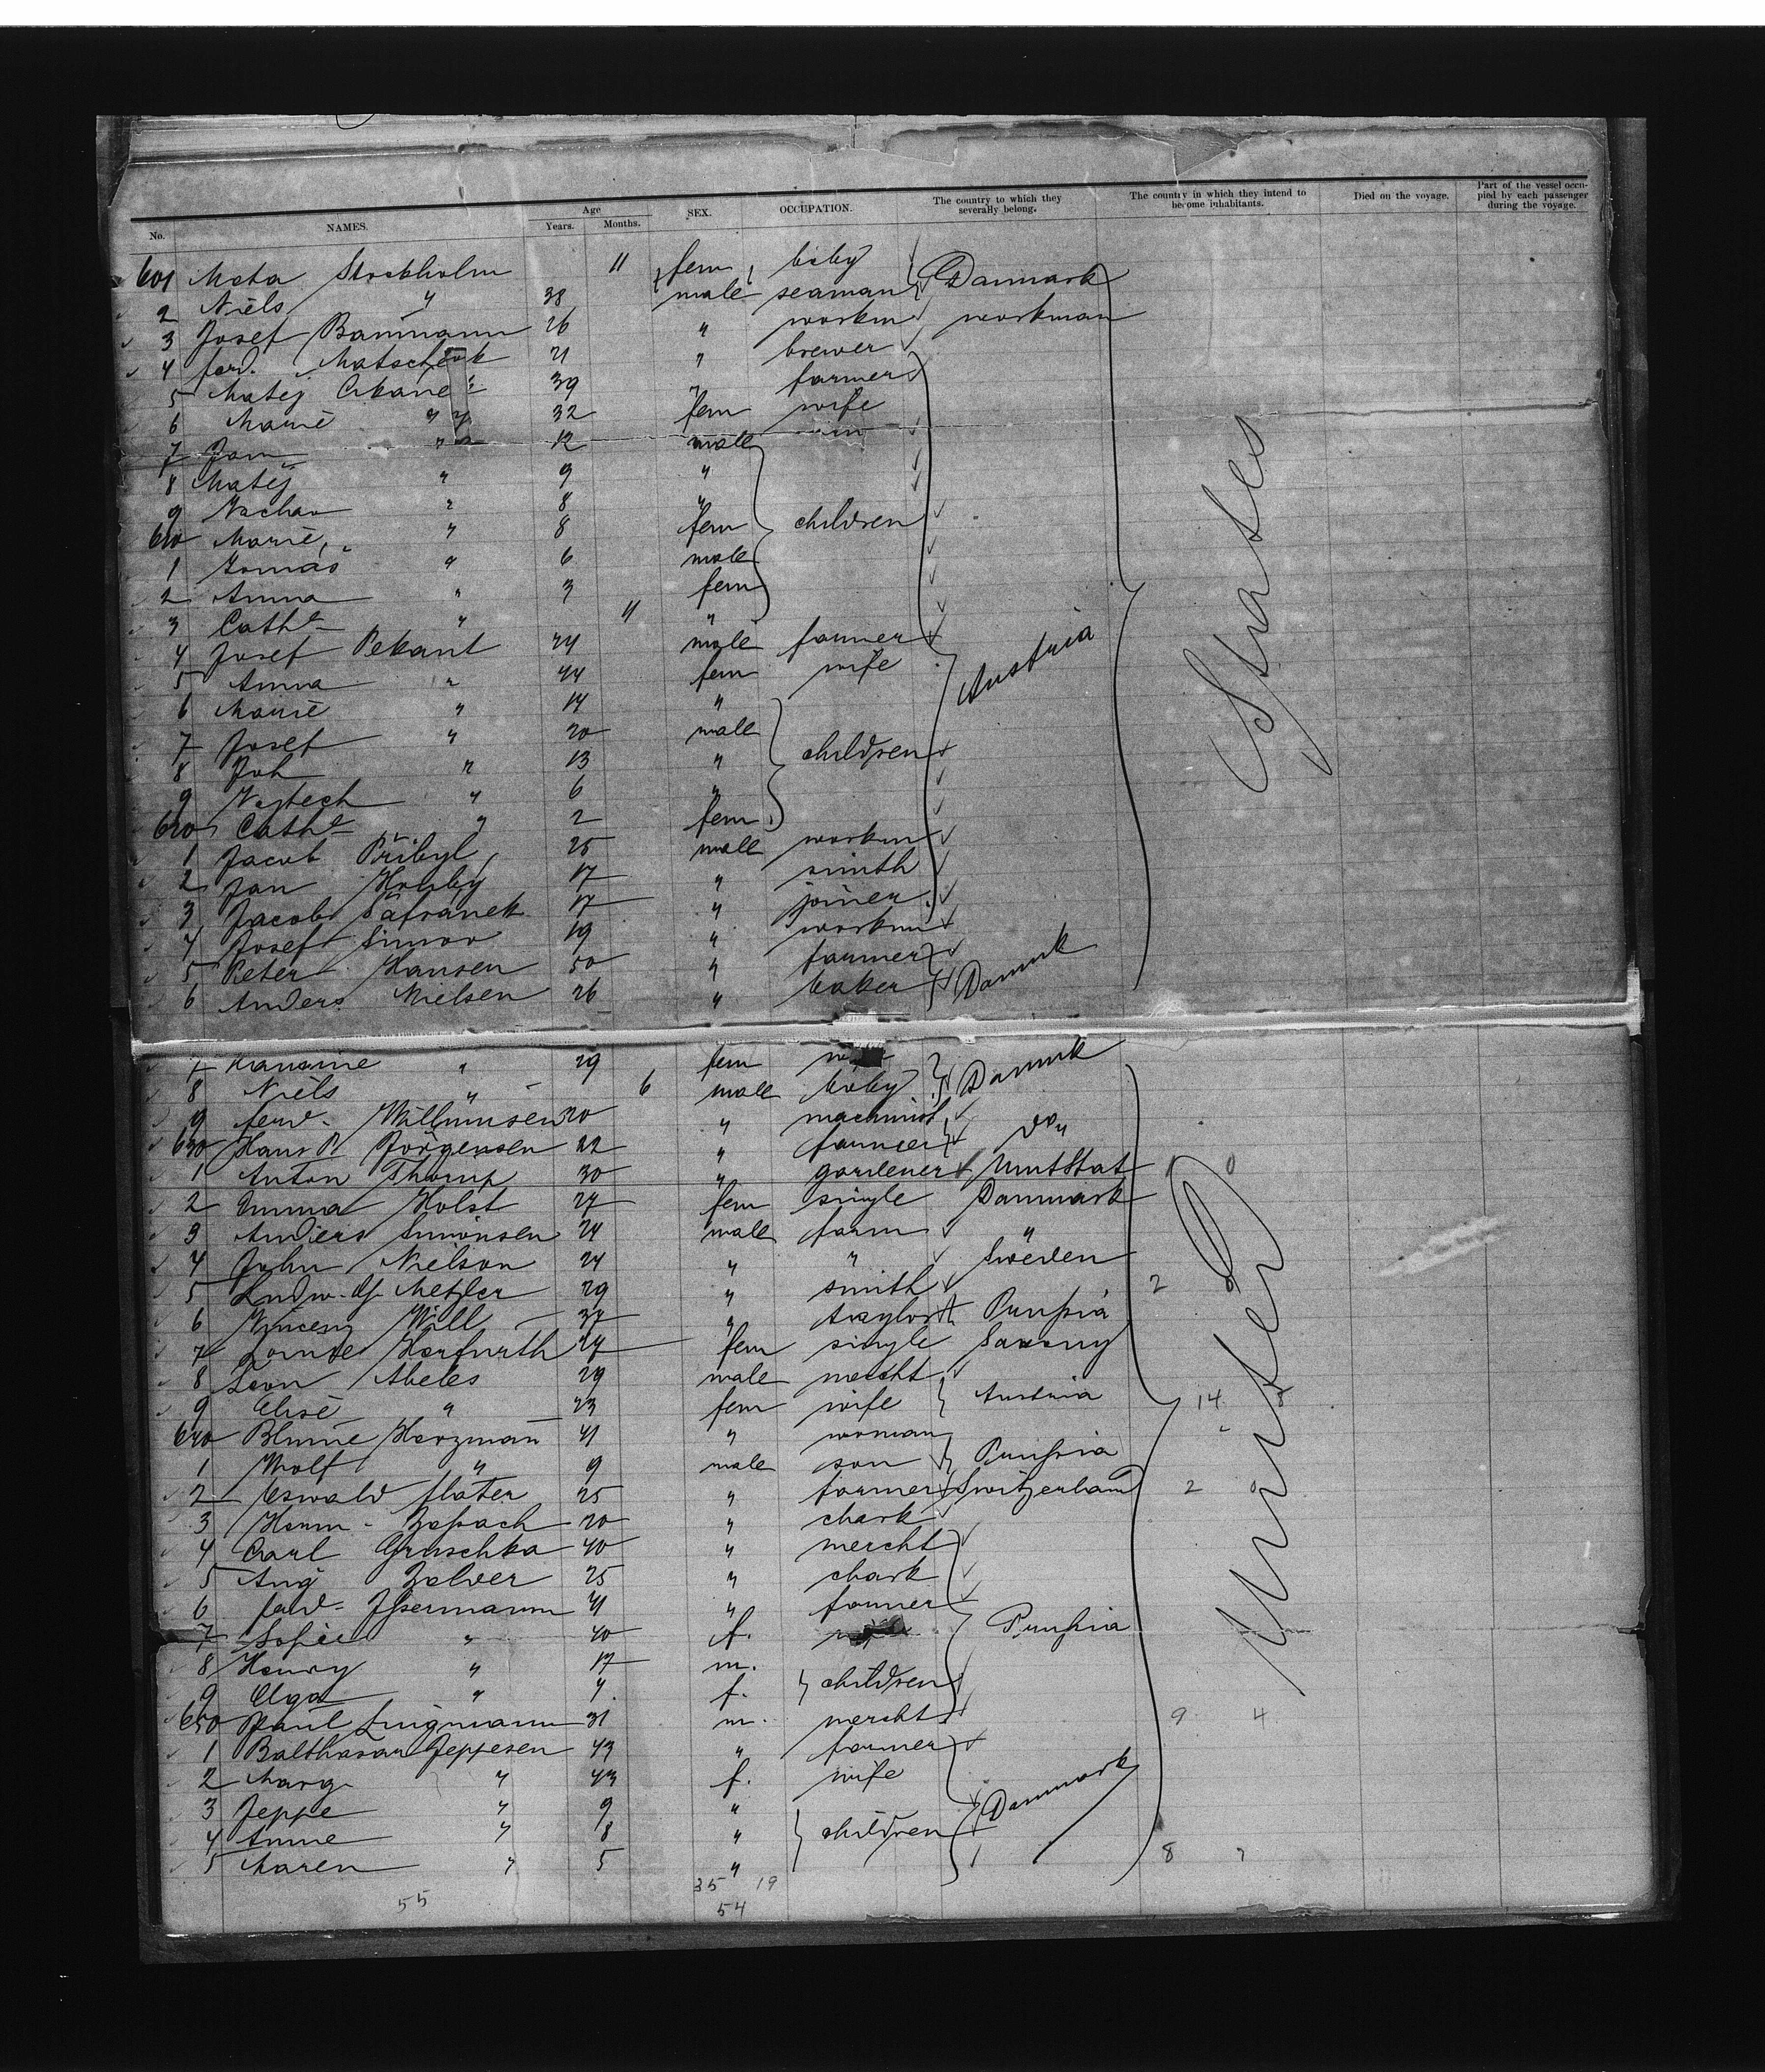 No. NAMES. Age Years. Months. SEX. OCCUPATION. The country to which they severally belong. The country in which they intend to become inhabitants. Died on the voyage. Part of the vessel occupied by each passenger during the voyage.
601 Meta Stockholm 11 fem baby Danmark
2 Niels " 38 male seaman
3 Josef Bammann 26 " workm workman
4 ferd. 21 " brewer
5 Matej 39 " farmer
6 Marie " 32 fem wife
7 Jan " 12 male
8 Matej " 9 "
9 " 8 "
610 Marie " 8 fem children
1 Tomas " 6 male
2 Anna " 3 fem
3 Cath " 11 "
4 Josef Pekant 44 male farmer Austria
5 Anna " 44 fem wife
6 Marie " 14 "
7 Josef " 20 male
8 Joh " 13 " children
9 " 6 "
620 Cath " 2 fem
1 Jacob Přibyl 25 male workm
2 Jan 17 " smith
3 Jacob Šafranek 17 " joiner
4 Josef 19 " workm
5 Peter Hansen 50 " farmer Danmk
6 Anders Nielsen 26 " baker
7 Hansine " 29 fem Danmk
8 Niels " 6 male baby
9 ferd. Willumsen 20 " machinist
630 Hans P. Jörgensen 22 " farmer do"
1 Anton Thorup 30 " gardener UnitStat
2 Emma Holst 27 fem single Danmark
3 Anders Simonsen 24 male farm "
4 John Nielson 24 " " Sweden
5 Metzler 29 " smith
6 Will 37 " taylor Prussia
7 Louise Herfurth 24 fem single Saxony
8 Leon Abeles 29 male mercht
9 Elise " 23 fem wife Austria
640 Blume Herzman 41 " woman
1 Wolf " 9 male son Prussia
2 Oswald 25 " farmer Switzerland
3 Herm 20 "
4 Carl Gruschka 40 " mercht
5 Aug 25 "
6 ferd. Issermann 41 " farmer
7 Sofie " 40 f. Prussia
8 Henry " 17 m.
9 Olga " 4 f. children
650 Paul Lingmann 31 m. mercht
1 Balthasar Jeppesen 43 " farmer
2 Marg " 43 f. wife
3 Jeppe " 9 " Danmark
4 Anne " 8 " children
5 Maren " 5 "
United States
2
14
2
9 4
8
35 19
55 54